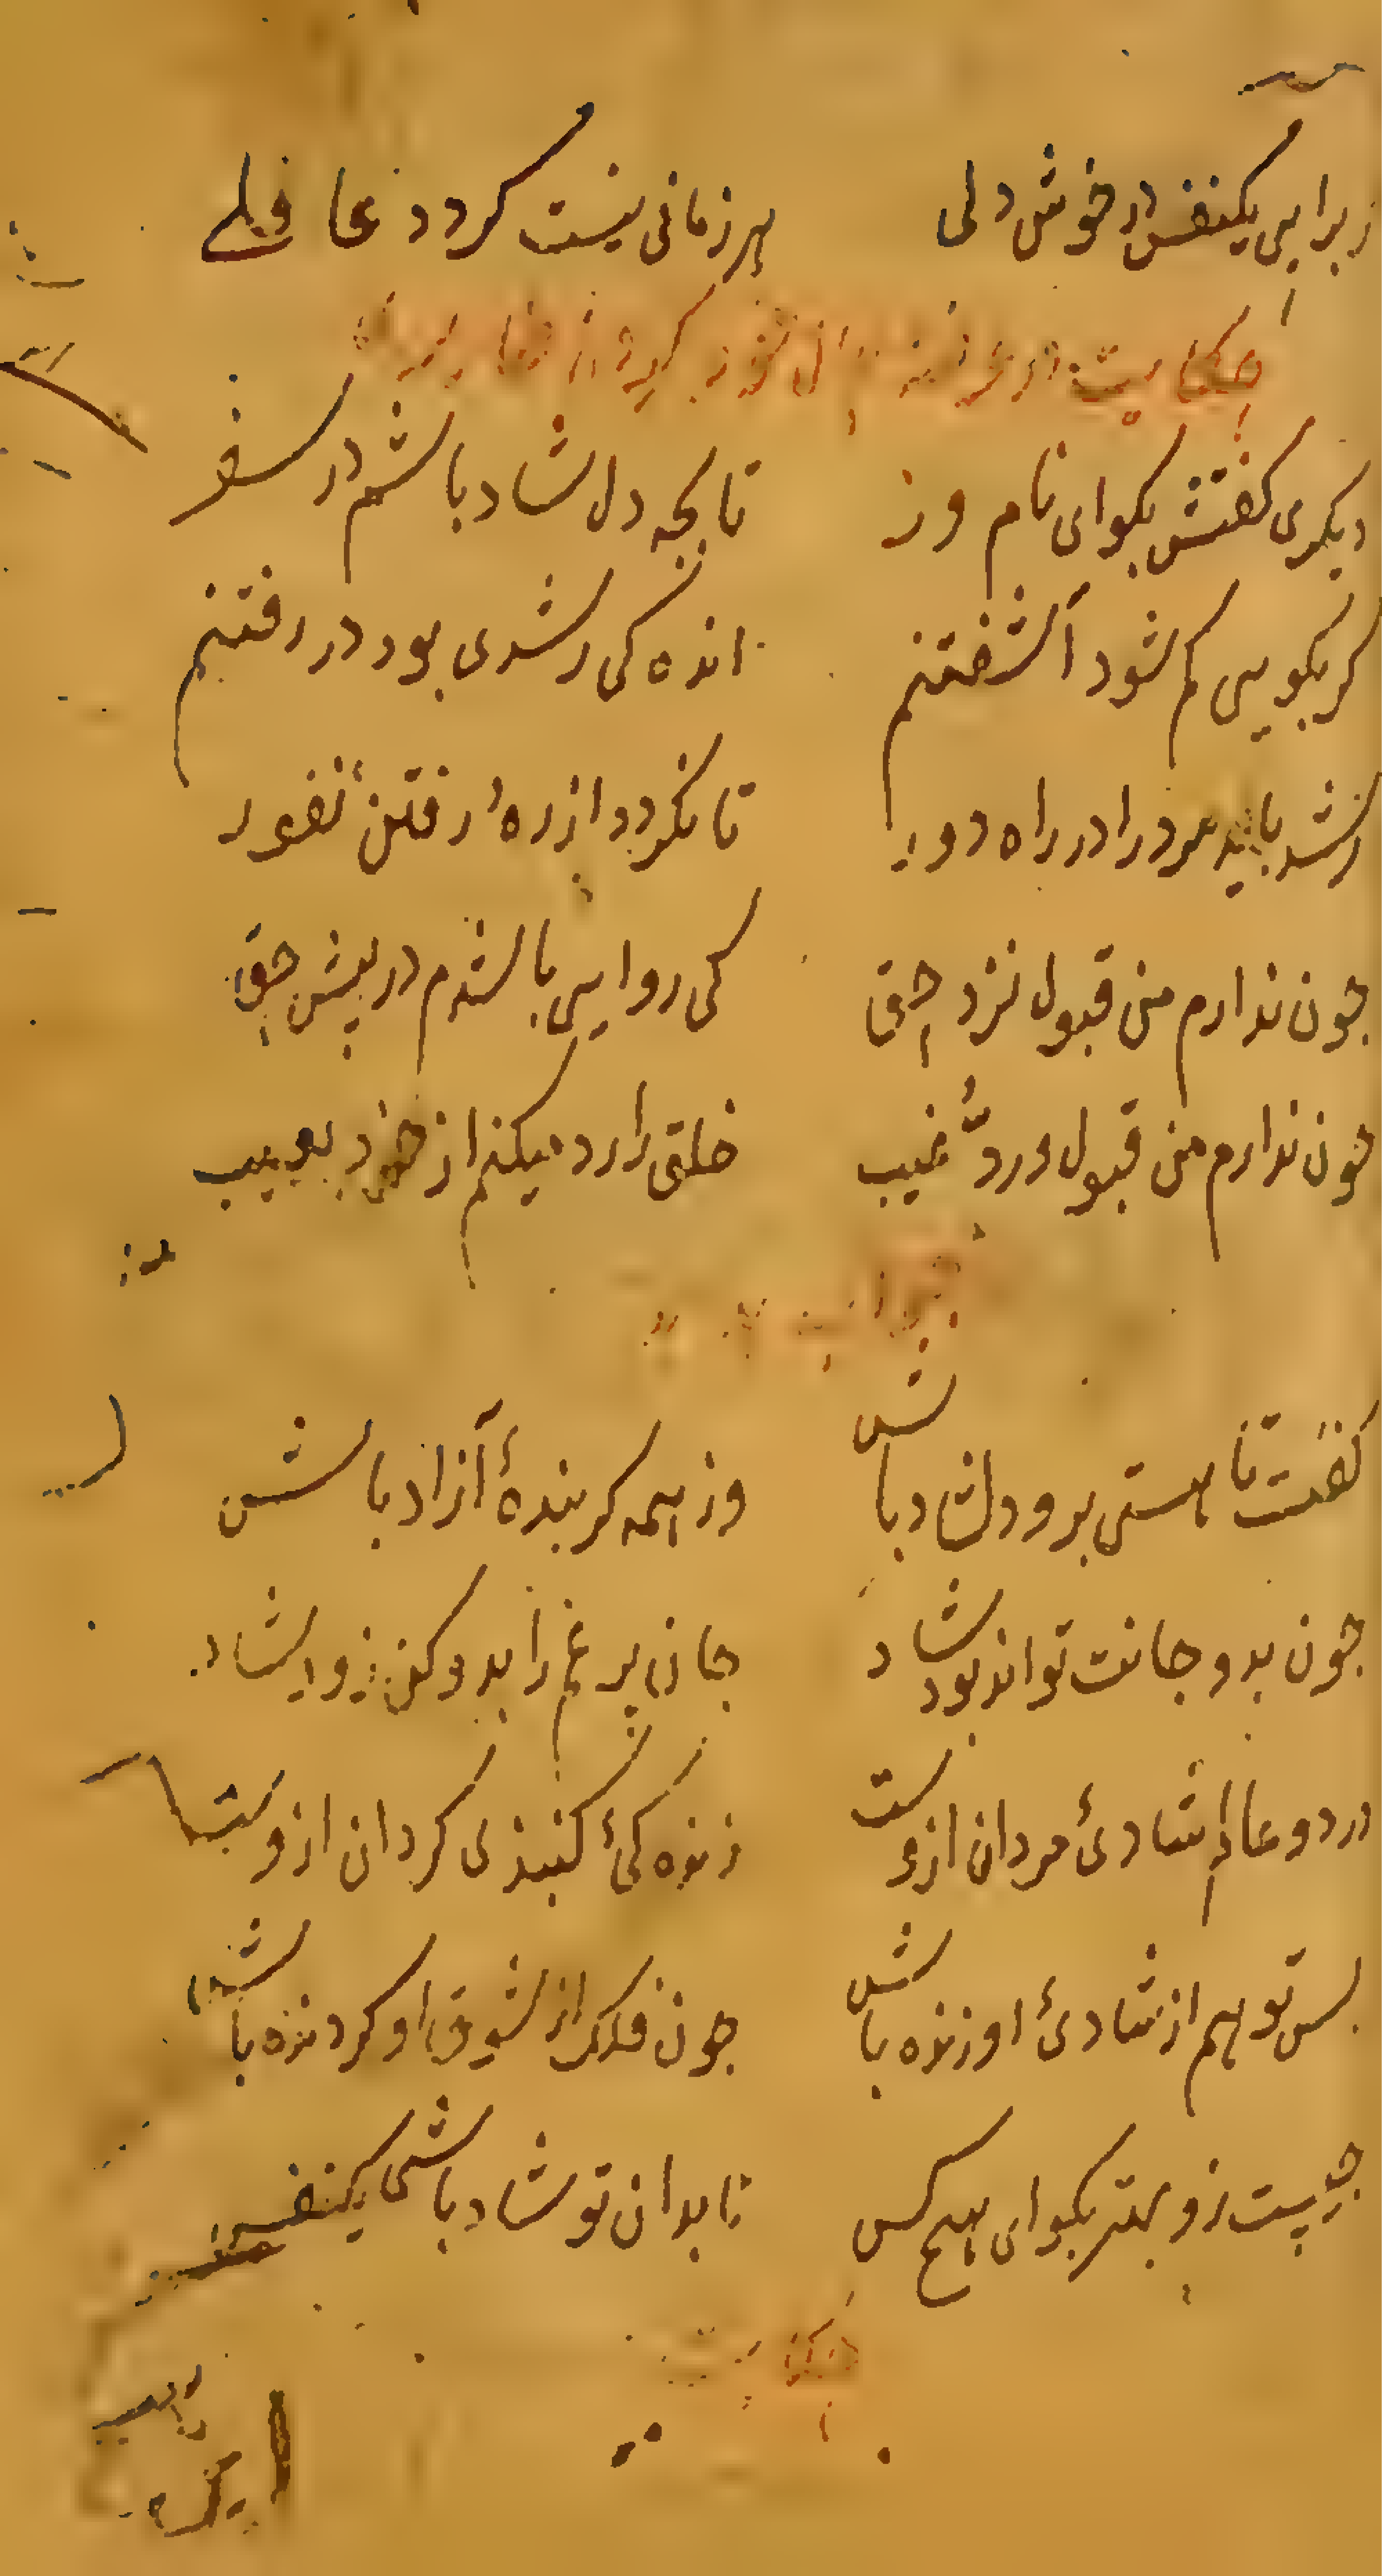 زیرا بی یکنفس در خوش دلی هر زمانی نیست کردد عاقلی
حکایت
دیکری کفتش بکو ای نام ور تا بچه دل شاد باشم در سفر
کر بکویی کم شود آشفتنم اندکی رشدی بود در رفتنم
رشد باید مرد را در راه دور تا نکردد از ره و رفتن نفور
جون ندارم من قبول نزد حق کی روایی باشدم در پیش حق
جون ندارم من قبول و ردّ غیب خلق را رد میکنم از خود بعیب
جواب
کفت تا هستی برو دل شاد باش وز همه کر بندهٔ آزاد باش
جون بدو جانت تواند بود شاد جان پر غم را بدو کن زود شاد
در دو عالم شادئ مردان ازوست زنده کئ کنبذ کردان ازوست
بس تو هم از شادئ او زنده باش جون فلک از شوق او کردنده باش
جیست زو بهتر بکو ای هیج کس تا بدان تو شاد باشی یکنفس
حکایت